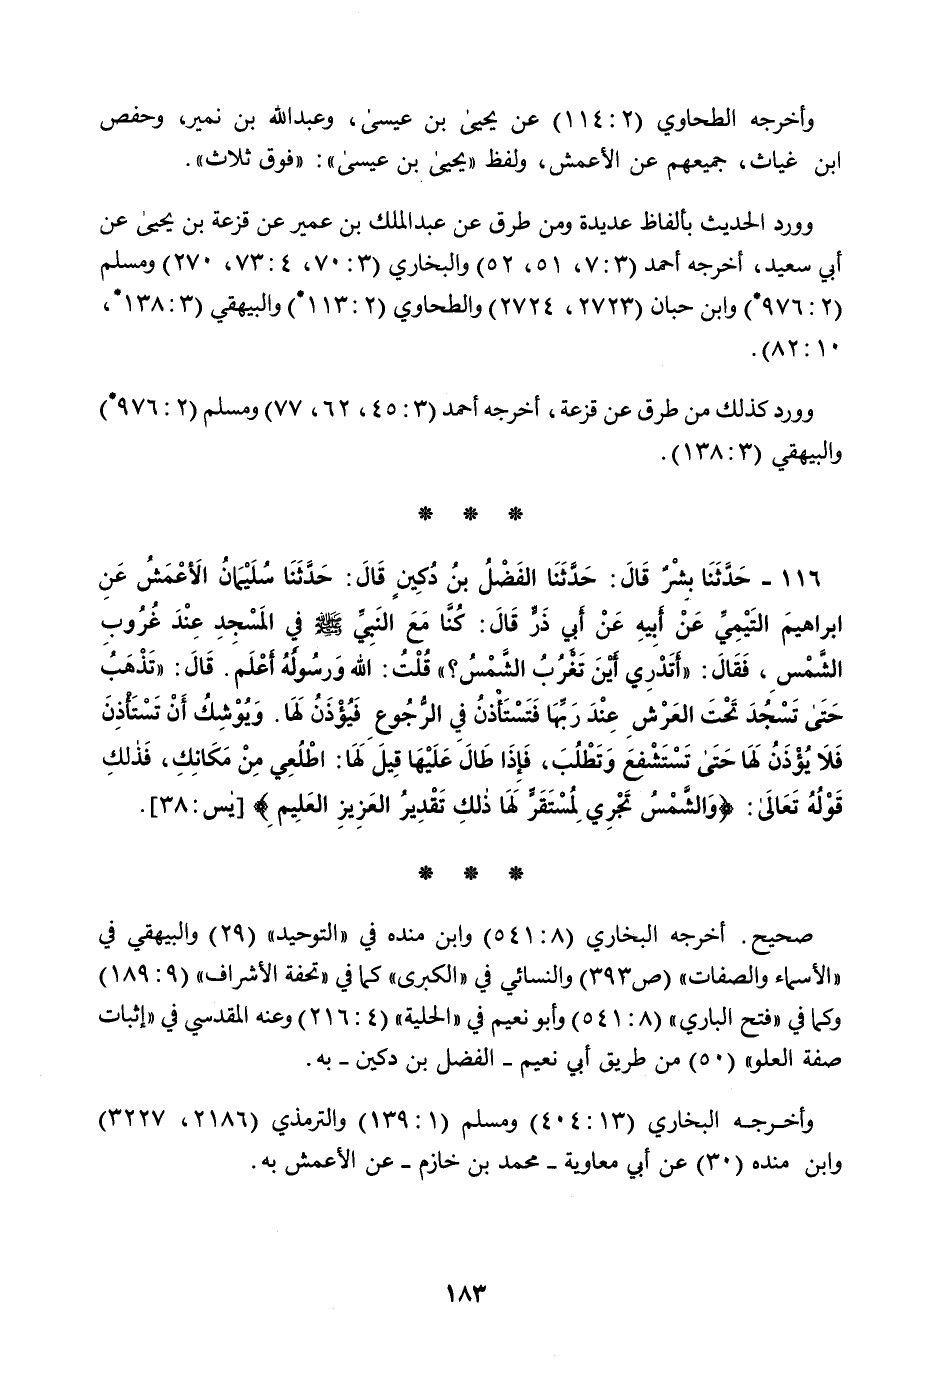 وأخرجه الطحاوي (٢ : ١١٤) عن يحيىٰ بن عيسىٰ، وعبدالله بن نمير، وحفص
ابن غياث، جميعهم عن الأعمش، ولفظ «يحيىٰ بن عيسىٰ»: «فوق ثلاث».
وورد الحديث بألفاظ عديدة ومن طرق عن عبدالملك بن عمير عن قزعة بن يحيىٰ عن
أبي سعيد، أخرجه أحمد (٣ : ٧، ٥١، ٥٢) والبخاري (٣ : ٧٠، ٤ : ٧٣، ٢٧٠) ومسلم
(٢ : ٩٧٦*) وابن حبان (٢٧٢٣، ٢٧٢٤) والطحاوي (٢ : ١١٣*) والبيهقي (٣ : ١٣٨*،
١٠ : ٨٢).
وورد كذلك من طرق عن قزعة، أخرجه أحمد (٣ : ٤٥، ٦٢، ٧٧) ومسلم (٢ : ٩٧٦*)
والبيهقي (٣ : ١٣٨).
* * *
١١٦ - حَدَّثَنَا بِشْرٌ قَالَ: حَدَّثَنَا الفَضْلُ بنُ دُكِينٍ قَالَ: حَدَّثَنَا سُلَيْمَانُ الَأعْمَشُ عَنِ
ابراهيمَ التَيْمِيِّ عَنْ أبِيهِ عَنْ أبي ذَرٍّ قَالَ: كُنَّا مَعَ النَبيِّ ﷺ في المَسْجِدِ عِنْدَ غُرُوبِ
الشَّمْسِ، فَقَالَ: «أَتَدْرِي أَيْنَ تَغْرُبُ الشَّمْسُ؟» قُلْتُ: الله وَرسُولُهُ أَعْلَم. قَالَ: «تَذْهَبُ
حَتىٰ تَسْجُدَ تَحْتَ العَرْشِ عِنْدَ رَبِّهَا فَتَسْتَأْذنُ في الرُّجُوعِ فَيُؤْذَنُ لَهَا. وَيُوْشِكُ أَنْ تَسْتَأْذِنَ
فَلَا يُؤْذَنُ لَهَا حَتىٰ تَسْتَشْفِعَ وَتَطْلُبَ، فَإذَا طَالَ عَلَيْهَا قِيلَ لَهَا: اطْلُعِي مِنْ مَكَانِكِ، فَذٰلكِ
قَوْلُهُ تَعَالىٰ: ﴿وَالشَّمْسُ تَجْرِي لِمُسْتَقَرٍّ لَهَا ذٰلكِ تَقْدِيرُ العَزِيزِ العَلِيمِ﴾ [يٰس: ٣٨].
* * *
صحيح. أخرجه البخاري (٨ : ٥٤١) وابن منده في «التوحيد» (٢٩) والبيهقي في
«الأسماء والصفات» (ص٣٩٣) والنسائي في «الكبرى» كما في «تحفة الأشراف» (٩ : ١٨٩)
وكما في «فتح الباري» (٨ : ٥٤١) وأبو نعيم في «الحلية» (٤ : ٢١٦) وعنه المقدسي في «إثبات
صفة العلو» (٥٠) من طريق أبي نعيم - الفضل بن دكين - به.
وأخرجه البخاري (١٣ : ٤٠٤) ومسلم (١ : ١٣٩) والترمذي (٢١٨٦، ٣٢٢٧)
وابن منده (٣٠) عن أبي معاوية - محمد بن خازم - عن الأعمش به.
١٨٣